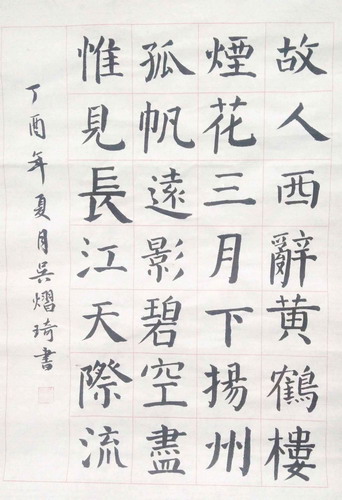 故人西辭黃鶴樓
煙花三月下揚州
孤帆遠影碧空盡
惟見長江天際流
丁酉年夏月吳熠琦書